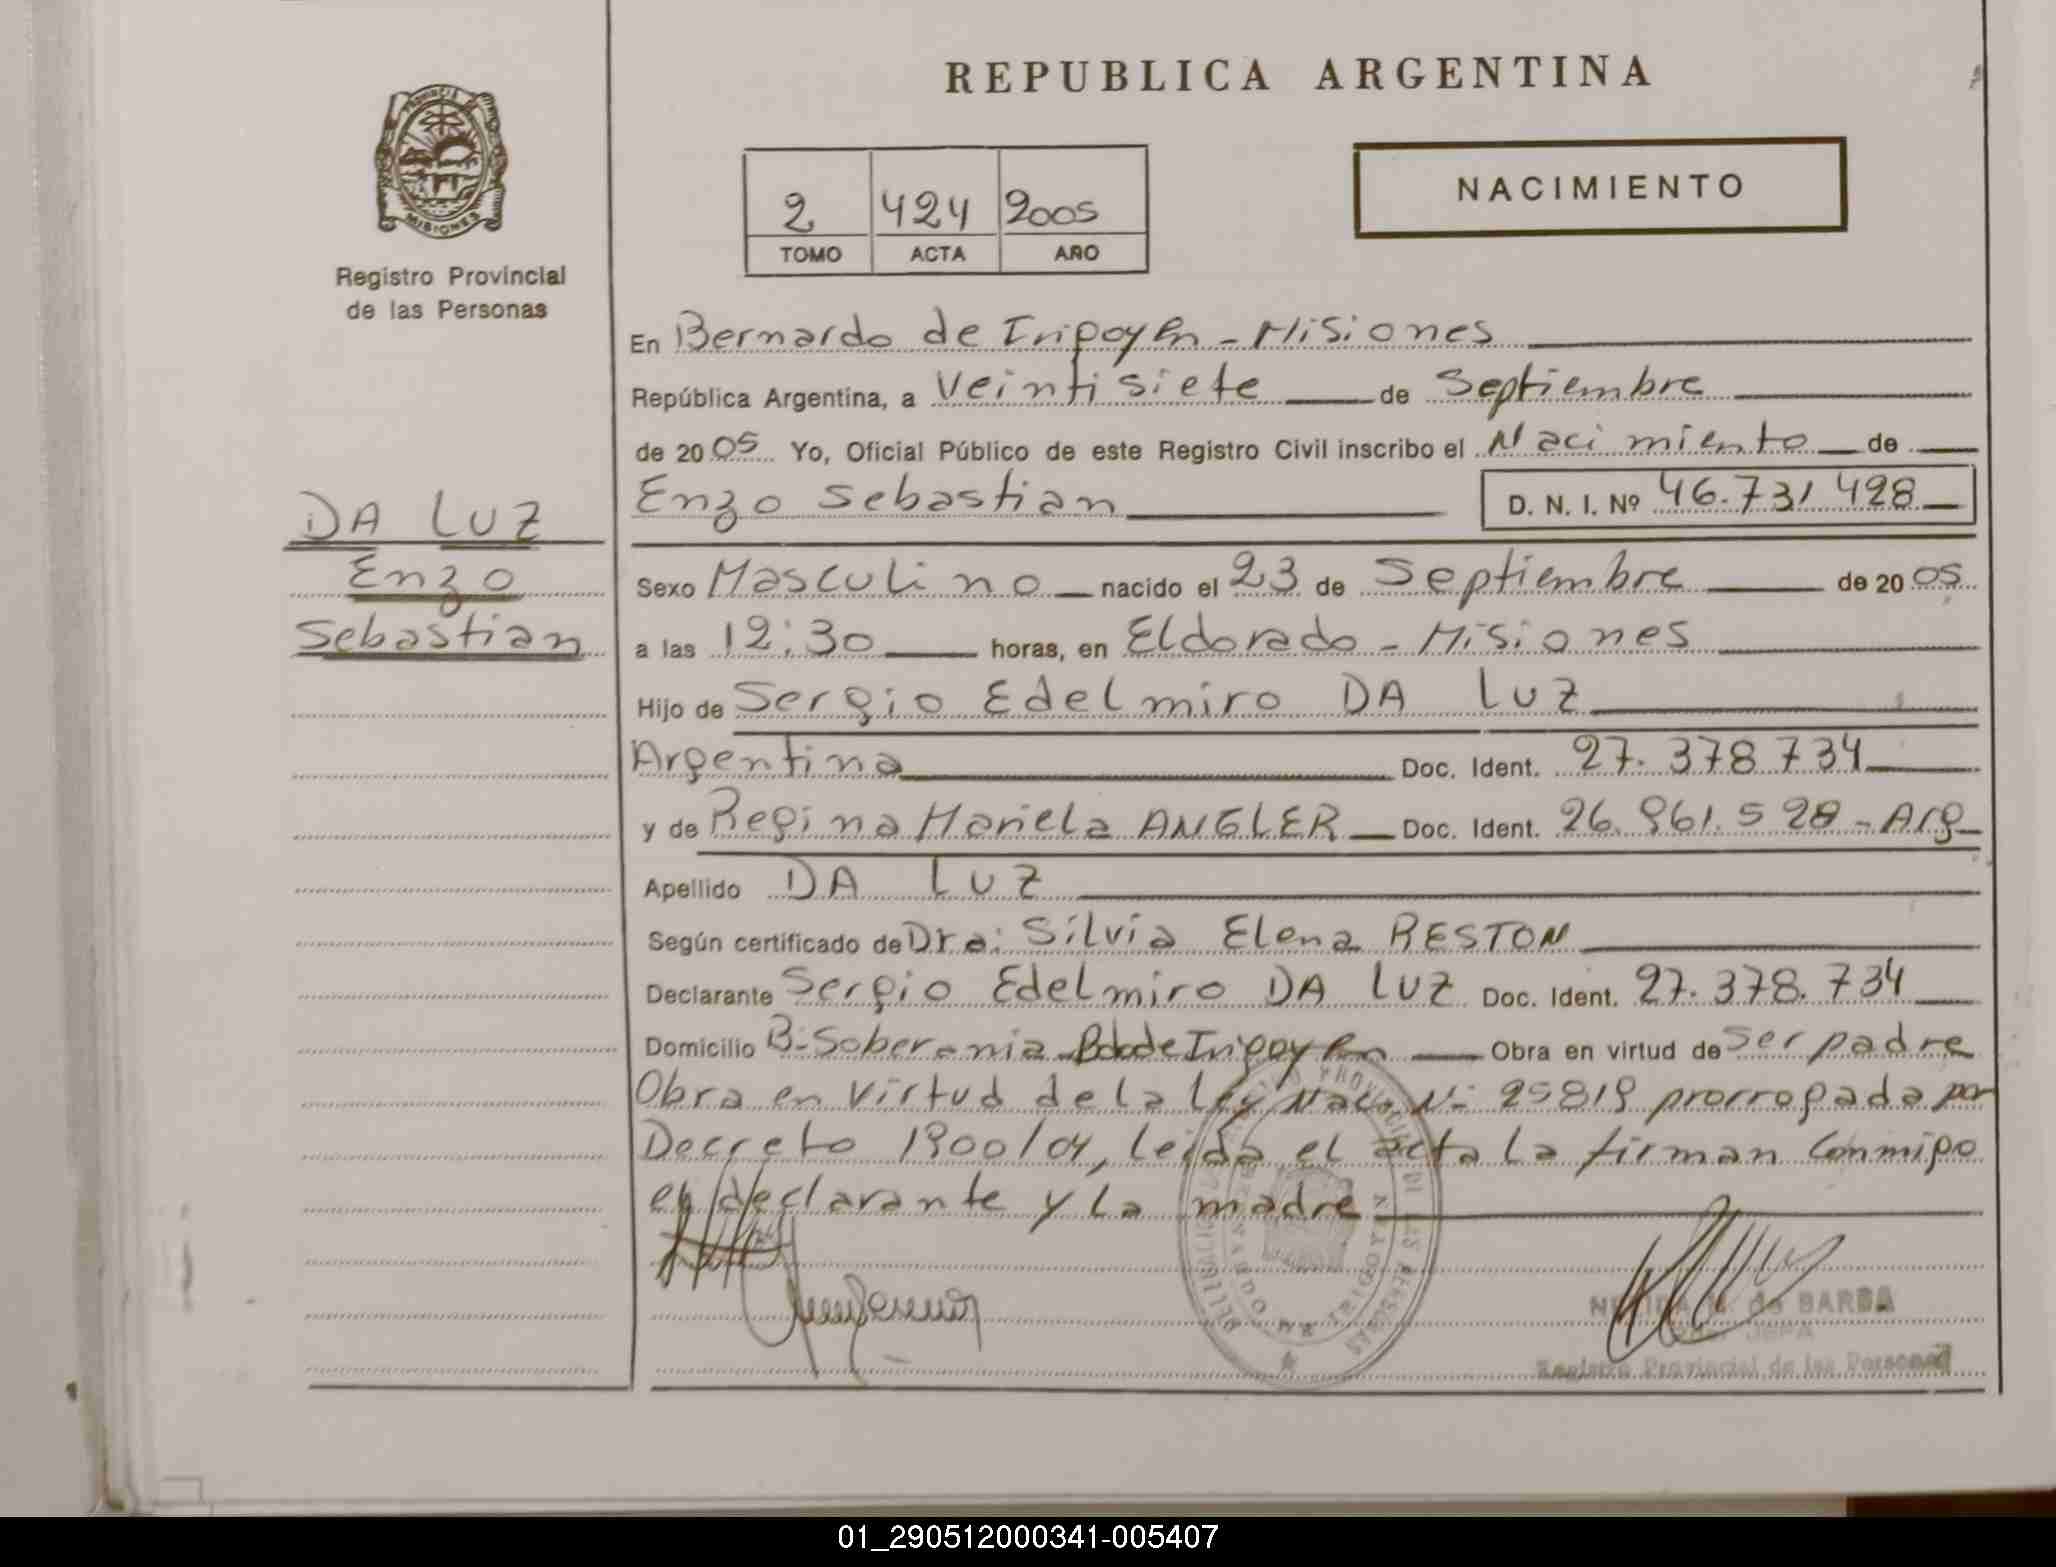 REPUBLICA ARGENTINA
PROVINCIA
MISIONES
Registro Provincial
de las Personas
2 424 2005
TOMO ACTA AÑO
NACIMIENTO
En Bernardo de Irigoyen - Misiones
República Argentina, a Veintisiete de Septiembre
de 2005 Yo, Oficial Público de este Registro Civil inscribo el Nacimiento de
DA LUZ
Enzo
Sebastian
Enzo Sebastian D. N. I. Nº 46.731 428
Sexo Masculino nacido el 23 de Septiembre de 2005
a las 12:30 horas, en Eldorado - Misiones
Hijo de Sergio Edelmiro DA LUZ
Argentina Doc. Ident. 27.378 734
y de Regina Mariela ANGLER Doc. Ident. 26.961.528 - Arg
Apellido DA LUZ
Según certificado de Dra: Silvia Elena RESTON
Declarante Sergio Edelmiro DA LUZ Doc. Ident. 27.378.734
Domicilio B- Soberania Bdo de Irigoyen Obra en virtud de Ser padre
Obra en virtud de la Ley Nac. N- 25819 prorrogada por
Decreto 1900/04, leida el acta la firman conmigo
el declarante y la madre
de BARBA
JEFA
Registro Provincial de las Personas
01_290512000341-005407